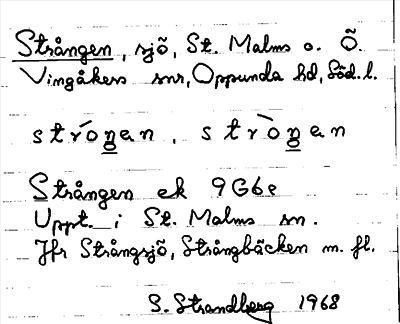 Strången, sjö, St. Malms o. Ö.
Vingåkers snr, Oppunda hd, Söd. l.
stro̅n̳en, stro̅n̳en
Strången ek 9G6e
Uppt. i St. Malms sn.
Jfr Strångsjö, Strångbäcken m. fl.
S. Strandberg 1968